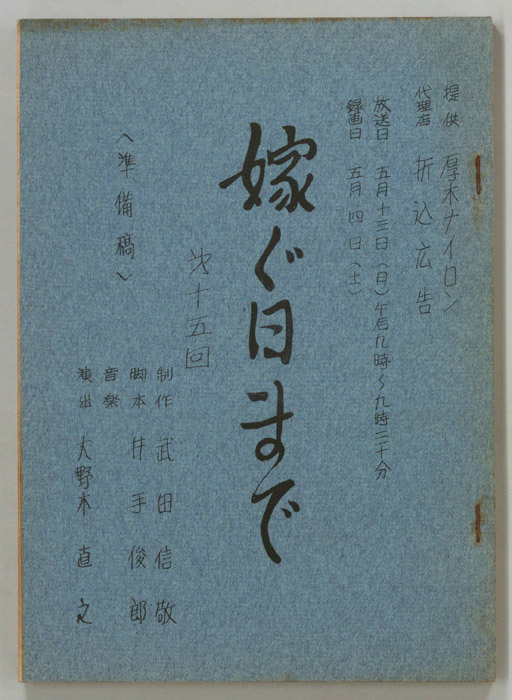 提供 厚木ナイロン
代理店 折込広告
放送日 五月十三日(月)午后九時〜九時三十分
録画日 五月四日(土)
嫁ぐ日まで
第十五回
〈準備稿〉
制作 武田信敬
脚本 井手俊郎
音楽
演出 大野木直之